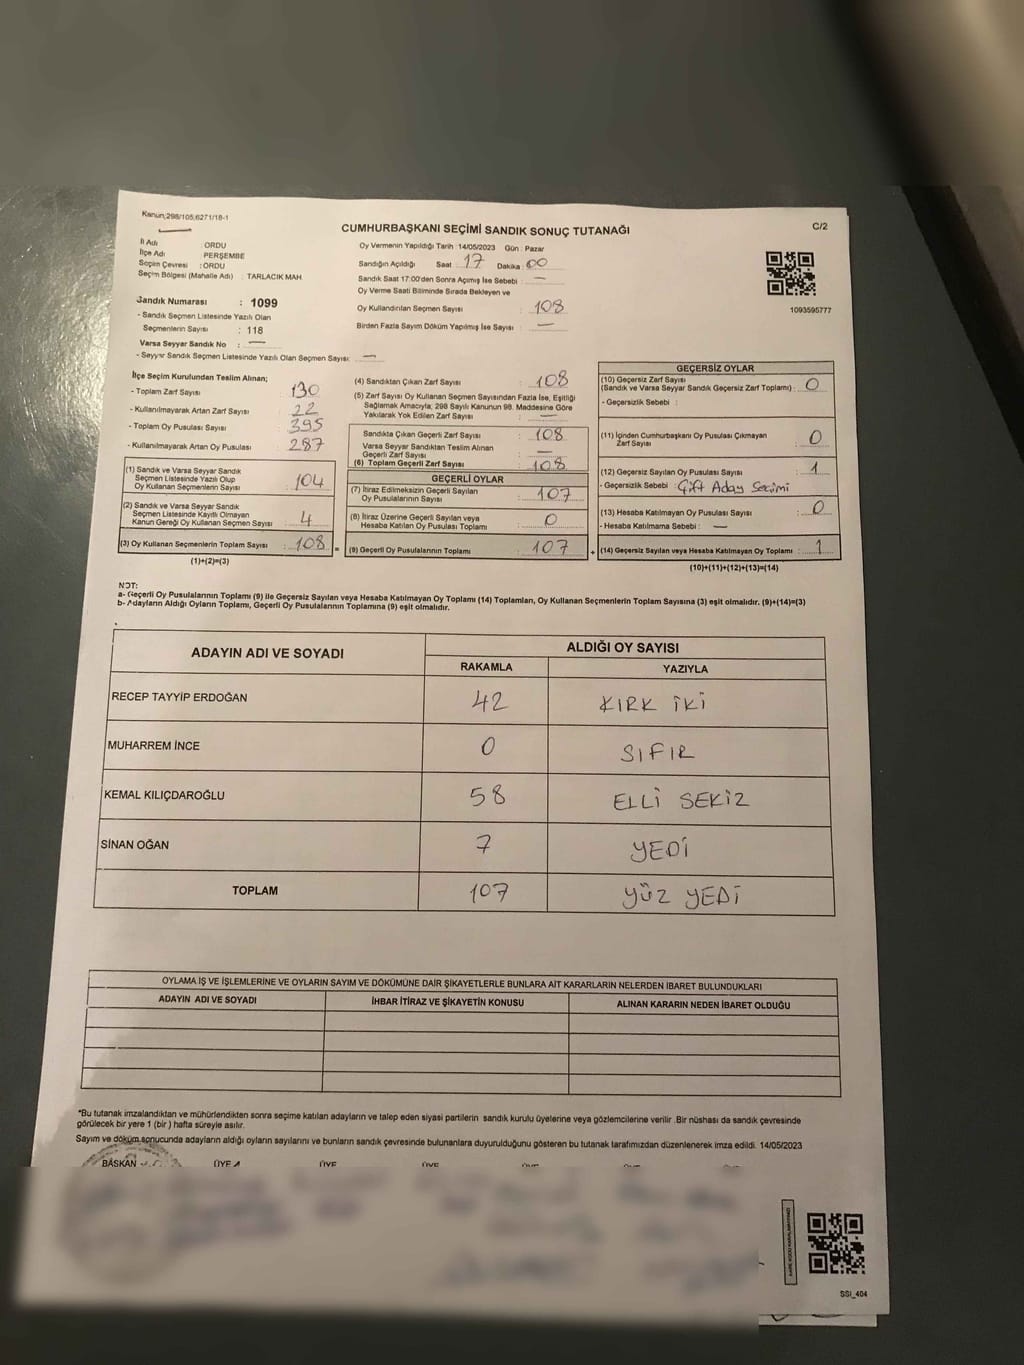 Kanun;298/105;6271/18-1
CUMHURBAŞKANI SEÇİMİ SANDIK SONUÇ TUTANAĞI
C/2
İl Adı : ORDU
İlçe Adı : PERŞEMBE
Seçim Çevresi : ORDU
Seçim Bölgesi (Mahalle Adı) : TARLACIK MAH.
Oy Vermenin Yapıldığı Tarih :14/05/2023 Gün : Pazar
Sandığın Açıldığı Saat : 17 Dakika : 00
Sandık Saat 17:00'den Sonra Açımış İse Sebebi : —
Oy Verme Saati Bitiminde Sırada Bekleyen ve
Oy Kullandırılan Seçmen Sayısı : 108
Birden Fazla Sayım Döküm Yapılmış İse Sayısı : —
1093595777
Sandık Numarası : 1099
- Sandık Seçmen Listesinde Yazılı Olan
Seçmenlerin Sayısı : 118
Varsa Seyyar Sandık No : —
- Seyyar Sandık Seçmen Listesinde Yazılı Olan Seçmen Sayısı: —
İlçe Seçim Kurulundan Teslim Alınan;
- Toplam Zarf Sayısı : 130
- Kullanılmayarak Artan Zarf Sayısı : 22
- Toplam Oy Pusulası Sayısı : 395
- Kullanılmayarak Artan Oy Pusulası : 287
(1) Sandık ve Varsa Seyyar Sandık
Seçmen Listesinde Yazılı Olup
Oy Kullanan Seçmenlerin Sayısı : 104
(2) Sandık ve Varsa Seyyar Sandık
Seçmen Listesinde Kayıtlı Olmayan
Kanun Gereği Oy Kullanan Seçmen Sayısı : 4
(3) Oy Kullanan Seçmenlerin Toplam Sayısı : 108 =
(1)+(2)=(3)
(4) Sandıktan Çıkan Zarf Sayısı : 108
(5) Zarf Sayısı Oy Kullanan Seçmen Sayısından Fazla İse, Eşitliği
Sağlamak Amacıyla; 298 Sayılı Kanunun 98. Maddesine Göre
Yakılarak Yok Edilen Zarf Sayısı : —
Sandıkta Çıkan Geçerli Zarf Sayısı : 108
Varsa Seyyar Sandıktan Teslim Alınan
Geçerli Zarf Sayısı : —
(6) Toplam Geçerli Zarf Sayısı : 108
GEÇERLİ OYLAR
(7) İtiraz Edilmeksizin Geçerli Sayılan
Oy Pusulalarının Sayısı : 107
(8) İtiraz Üzerine Geçerli Sayılan veya
Hesaba Katılan Oy Pusulası Toplamı : 0
(9) Geçerli Oy Pusulalarının Toplamı : 107 +
GEÇERSİZ OYLAR
(10) Geçersiz Zarf Sayısı
(Sandık ve Varsa Seyyar Sandık Geçersiz Zarf Toplamı) : 0
- Geçersizlik Sebebi :
(11) İçinden Cumhurbaşkanı Oy Pusulası Çıkmayan
Zarf Sayısı : 0
(12) Geçersiz Sayılan Oy Pusulası Sayısı : 1
- Geçersizlik Sebebi : Çift Aday Seçimi
(13) Hesaba Katılmayan Oy Pusulası Sayısı : 0
- Hesaba Katılmama Sebebi : —
(14) Geçersiz Sayılan veya Hesaba Katılmayan Oy Toplamı : 1
(10)+(11)+(12)+(13)=(14)
NOT:
a- Geçerli Oy Pusulalarının Toplamı (9) ile Geçersiz Sayılan veya Hesaba Katılmayan Oy Toplamı (14) Toplamları, Oy Kullanan Seçmenlerin Toplam Sayısına (3) eşit olmalıdır. (9)+(14)=(3)
b- Adayların Aldığı Oyların Toplamı, Geçerli Oy Pusulalarının Toplamına (9) eşit olmalıdır.
ADAYIN ADI VE SOYADI
ALDIĞI OY SAYISI
RAKAMLA YAZIYLA
RECEP TAYYİP ERDOĞAN 42 KIRK İKİ
MUHARREM İNCE 0 SIFIR
KEMAL KILIÇDAROĞLU 58 ELLİ SEKİZ
SİNAN OĞAN 7 YEDİ
TOPLAM 107 YÜZ YEDİ
OYLAMA İŞ VE İŞLEMLERİNE VE OYLARIN SAYIM VE DÖKÜMÜNE DAİR ŞİKAYETLERLE BUNLARA AİT KARARLARIN NELERDEN İBARET BULUNDUKLARI
ADAYIN ADI VE SOYADI İHBAR İTİRAZ VE ŞİKAYETİN KONUSU ALINAN KARARIN NEDEN İBARET OLDUĞU
*Bu tutanak imzalandıktan ve mühürlendikten sonra seçime katılan adayların ve talep eden siyasi partilerin sandık kurulu üyelerine veya gözlemcilerine verilir. Bir nüshası da sandık çevresinde
görülecek bir yere 1 (bir) hafta süreyle asılır.
Sayım ve döküm sonucunda adayların aldığı oyların sayılarını ve bunların sandık çevresinde bulunanlara duyurulduğunu gösteren bu tutanak tarafımızdan düzenlenerek imza edildi. 14/05/2023
BAŞKAN ÜYE ÜYE ÜYE
SSİ_404